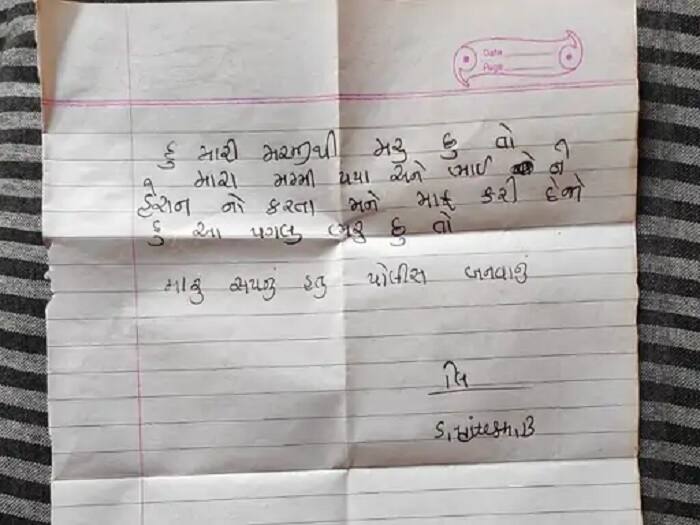 Date
Page
હું મારી મરજીથી મરુ છુ તો
મારા મમ્મી પપા અને ભાઈ ને
હેરાન નો કરતા મને માફ કરી દેજો
હુ આ પગલુ ભરુ છુ તો
મારું સપનું હતુ પોલીસ બનવાનું
લિ